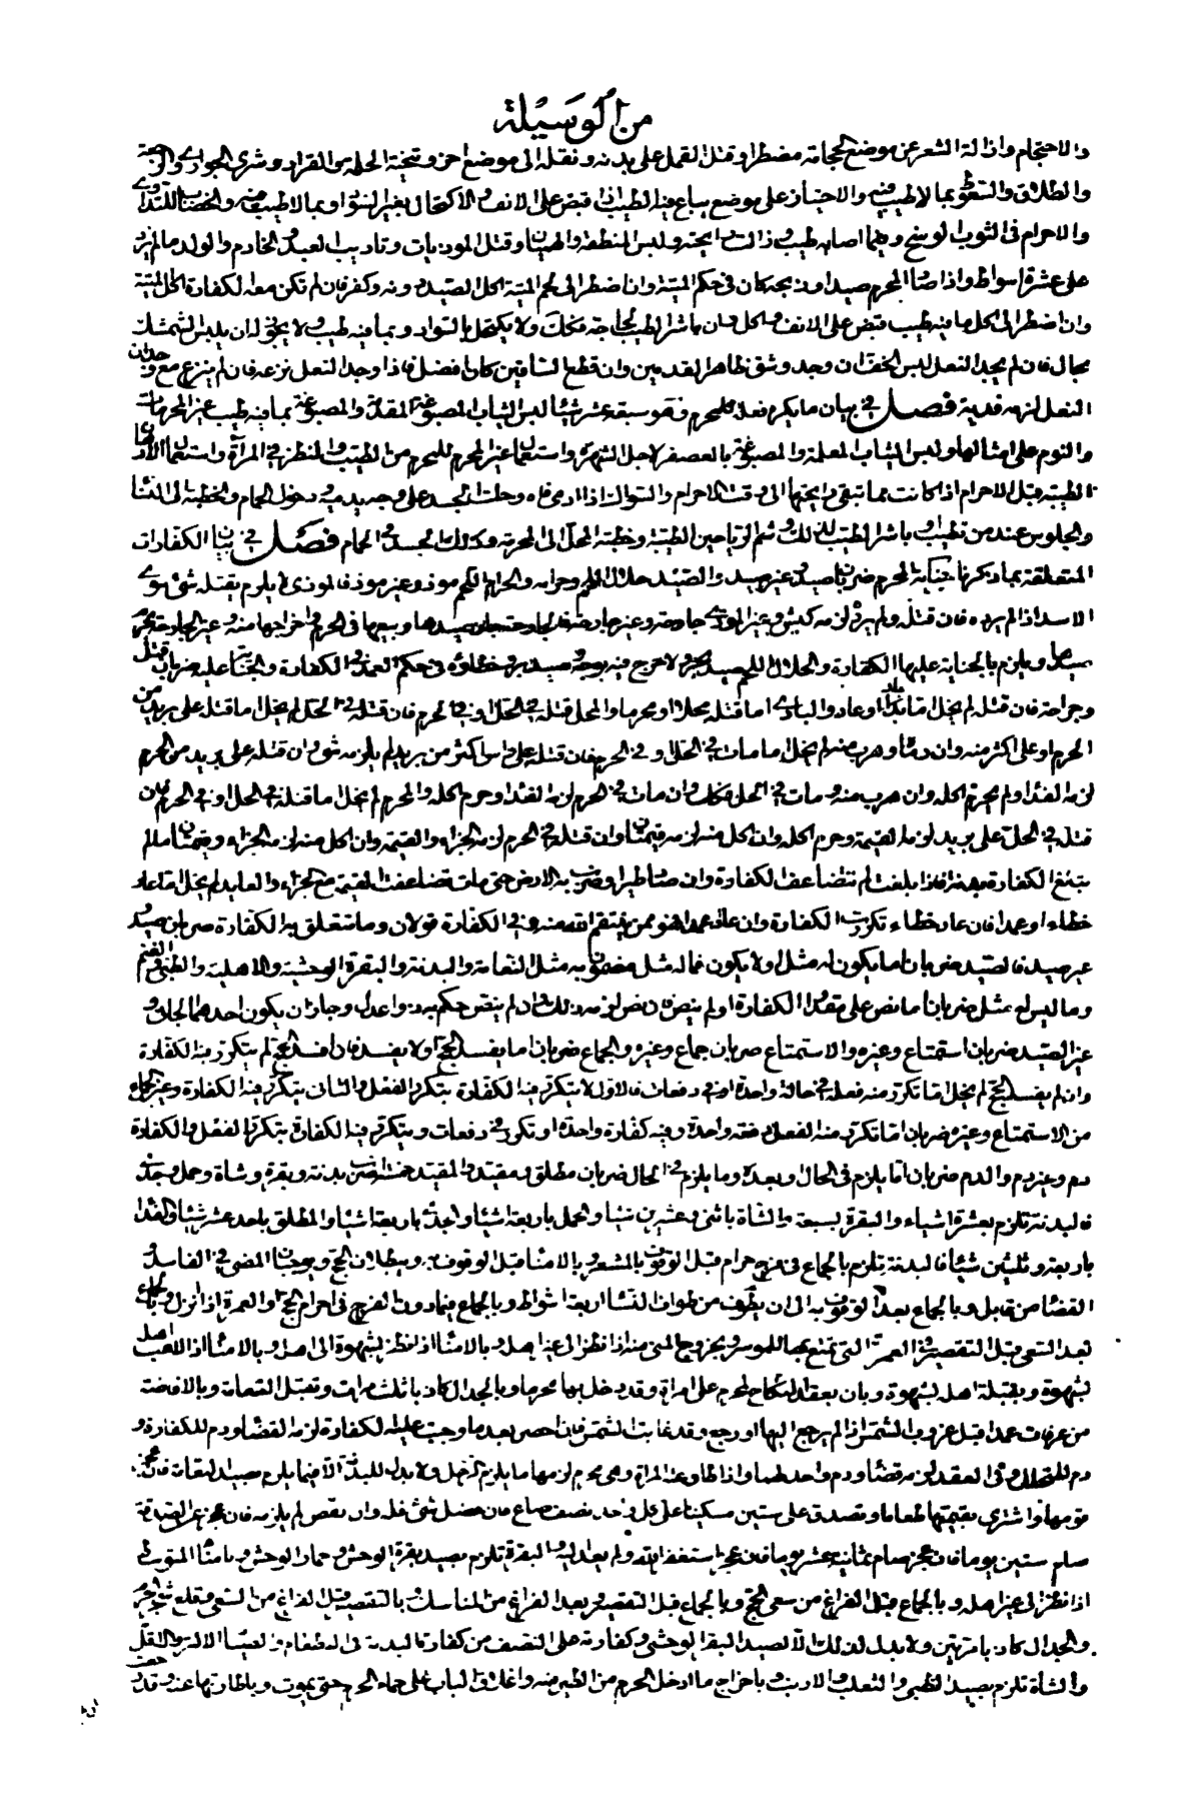 من الوسيلة
والاحتجام وازالة الشعر عن موضع الحجامة مضطرا وقتل القمل على بدنه ونقله الى موضع اخر وتنحية الحلم من القراد وشرى الجوارى والرجعة
والطلاق والتسعط بما لا طيب فيه والاجتياز على موضع يباع فيه الطيب اذا قبض على الانف والاكتحال بغير السواد وبما لا طيب فيه والخضاب للتداوى
والاحرام في الثوب الوسخ وفيما اصابه طيب وذالت رايحته ولبس المنطقة والهميان وقتل الموذيات وتاديب العبد والخادم والولد ما لم يزد
على عشرة اسواط واذا صاد المحرم صيدا وذبحه كان في حكم الميتة وان اضطر الى لحم الميتة اكل الصيد دونه وكفر فان لم تكن معه الكفارة اكل الميتة
وان اضطر الى اكل ما فيه طيب قبض على الانف واكل وان باشر الطيب لحاجة فكذلك ولا يكتحل بالسواد وبما فيه طيب ولا يجوز له ان يلبس الشمشك
بحال فان لم يجد النعل لبس الخف ان وجد وشق ظاهر القدمين وان قطع الساقين كان افضل فاذا وجد النعل نزعه فان لم ينزع مع وجدان
النعل لزمه فدية فصل في بيان ما يكره فعله للمحرم وهو سبعة عشر شيئا لبس الثياب المصبوغة المقدمة والمصبوغة بما فيه طيب غير المحرمات
والنوم على امثالها ولبس الثياب المعلمة والمصبوغة بالعصفر لاجل الشهرة واستعمال غير المحرم للمحرم من الطيب والنظر في المرآة واستعمال الادهان
الطيبة قبل الاحرام اذا كانت مما تبقى رايحتها الى وقت الاحرام والسواك اذا ادمى فاه وحك الجسد على وجه يدميه ودخول الحمام والخطبة الى النساء
والجلوس عند من تطيب او باشر الطيب لذلك وشم الرياحين الطيبة وخطبة المحل الى المحرمة وكذلك الجسد في الحمام فصل في بيان الكفارات
المتعلقة بما ذكرناه جناية المحرم ضربان صيد وغير صيد والصيد حلال اللحم وحرامه والحرام اللحم موذ وغير موذ فالموذى لا يلزم بقتله شئ سوى
الاسد اذا لم يرده فان قتله ولم يرده لزمه كبش وغير الموذى جارحة وغير جارحة
ويلزم بالجناية عليها الكفارة والحلال اللحم صيد بحر ولا حرج فيه بوجه وصيد بر وخطاؤه في حكم العمد في الكفارة والجناية عليه ضربان قتل
وجراحة فان قتله لم يخل اما بدا او عاد والبادى اما قتله محلا او محرما والمحل قتله في الحل او في الحرم فان قتله في الحل لم يخل اما قتله على بريد من
الحرم او على اكثر منه وان رماه وهرب منه لم يخل اما مات في الحل او في الحرم فان قتله على راس اكثر من بريد لم يلزمه شئ وان قتله على بريد من الحرم
لزمه الفداء ولم يحرم اكله وان هرب منه ومات في الحل فكذلك وان مات في الحرم لزمه الفداء وحرم اكله والمحرم لم يخل اما قتله في الحل او في الحرم فان
قتله في الحل على بريد لزمه القيمة وحرم اكله وان اكل منه لزمه قيمتان وان قتله في الحرم لزمه الجزاء والقيمة وان اكل منه لزمه الجزاء وقيمتان ما لم
يبلغ الكفارة بدنة فاذا بلغت لم تتضاعف الكفارة وان صاد طيرا وضرب به الارض حتى مات تضاعفت القيمة مع الجزاء والعايد لم يخل اما عاد
خطاء او عمدا فان عاد خطاء تكررت الكفارة وان عاد عمدا فهو ممن ينتقم الله منه وفي الكفارة قولان وما تتعلق به الكفارة ضربان صيد و
غير صيد فالصيد ضربان اما يكون له مثل او لا يكون فما له مثل مضمون به مثل النعامة والبدنة والبقرة الوحشية والاهلية والظبى والغنم
وما ليس له مثل ضربان اما نص على مقدار الكفارة او لم ينص فان نص لزمه ذلك وان لم ينص حكم به ذوا عدل وجاز ان يكون احدهما الجاني و
غير الصيد ضربان استمتاع وغيره والاستمتاع ضربان جماع وغيره والجماع ضربان اما يفسد الحج او لا يفسد فان افسد الحج لم يتكرر فيه الكفارة
وان لم يفسد الحج لم يخل اما تكرر منه فعله في حالة واحدة او في دفعات فالاول لا يتكرر فيه الكفارة بتكرر الفعل والثاني يتكرر فيه الكفارة وغير الجماع
من الاستمتاع وغيره ضربان اما تكرر منه الفعل دفعة واحدة وفيه كفارة واحدة او تكرر في دفعات ويتكرر فيه الكفارة بتكرر الفعل والكفارة
دم وغير دم والدم ضربان اما يلزم في الحال او بعده وما يلزم في الحال ضربان مطلق ومقيد والمقيد خمسة اضرب بدنة وبقرة وشاة وحمل وجدى
فالبدنة تلزم بعشرة اشياء والبقرة بسبعة والشاة باثنى وعشرين شيئا والحمل باربعة اشياء والجدى باربعة اشياء والمطلق باحد عشر شيئا والفداء
باربعة وثلثين شيئا فالبدنة تلزم بالجماع في فرج حرام قبل الوقوف بالمشعر وبالامناء قبل الوقوف به وببطلان الحج ويوجبان المضى في الفاسد و
القضاء من قابل وبالجماع بعد الوقوف به الى ان يطوف من طواف النساء اربعة اشواط وبالجماع فيما دون الفرج في احرام الحج والعمرة اذا انزل وبالجماع
بعد السعى قبل التقصير في العمرة التى يتمتع بها للموسر وبخروج المنى منه اذا نظر الى غير اهله وبالامناء اذا نظر بشهوة الى اهله وبالامناء اذا لاعب اهله
بشهوة وبقبلة اهله بشهوة وبان يعقد النكاح لمحرم على امراة وقد دخل بها محرما وبالجدال كاذبا ثلث مرات وبقتل النعامة وبالافاضة
من عرفات عمدا قبل غروب الشمس اذا لم يرجع اليها او رجع وقد غابت الشمس فان احصر بعد ما وجبت عليه الكفارة لزمه القضاء ودم للكفارة و
دم للتحلل وفي العقد لزمه قضاء ودم واحد لهما واذا طاوعته المراة وهى محرمة لزمها ما يلزم الرجل ولا بدل للبدنة الا فيما يلزم بصيد النعامة فان عجز
قومها واشترى بقيمتها طعاما وتصدق على ستين مسكينا على كل واحد نصف صاع فان فضل شئ فله وان نقص لم يلزمه فان عجز عن الصدقة
صام ستين يوما فان عجز صام ثمانية عشر يوما فان عجز استغفر الله ولم يعد اليه والبقرة تلزم بصيد بقرة الوحش وحمار الوحش وبامناء المتوسط
اذا نظر الى غير اهله وبالجماع قبل الفراغ من سعى الحج وبالجماع قبل التقصير وبعد الفراغ من المناسك وبالتقصير قبل الفراغ من السعى وقلع شجر الحرم
والجدال كاذبا مرتين ولا بدل لذلك الا لصيد البقر الوحشى وكفارته على النصف من كفارة البدنة في الاطعام والصيام
والشاة تلزم بصيد الظبى والثعلب والارنب وباخراج ما ادخل الحرم من الطير منه واغلاق الباب على حمام الحرم حتى يموت وباطارتها عنه وقد